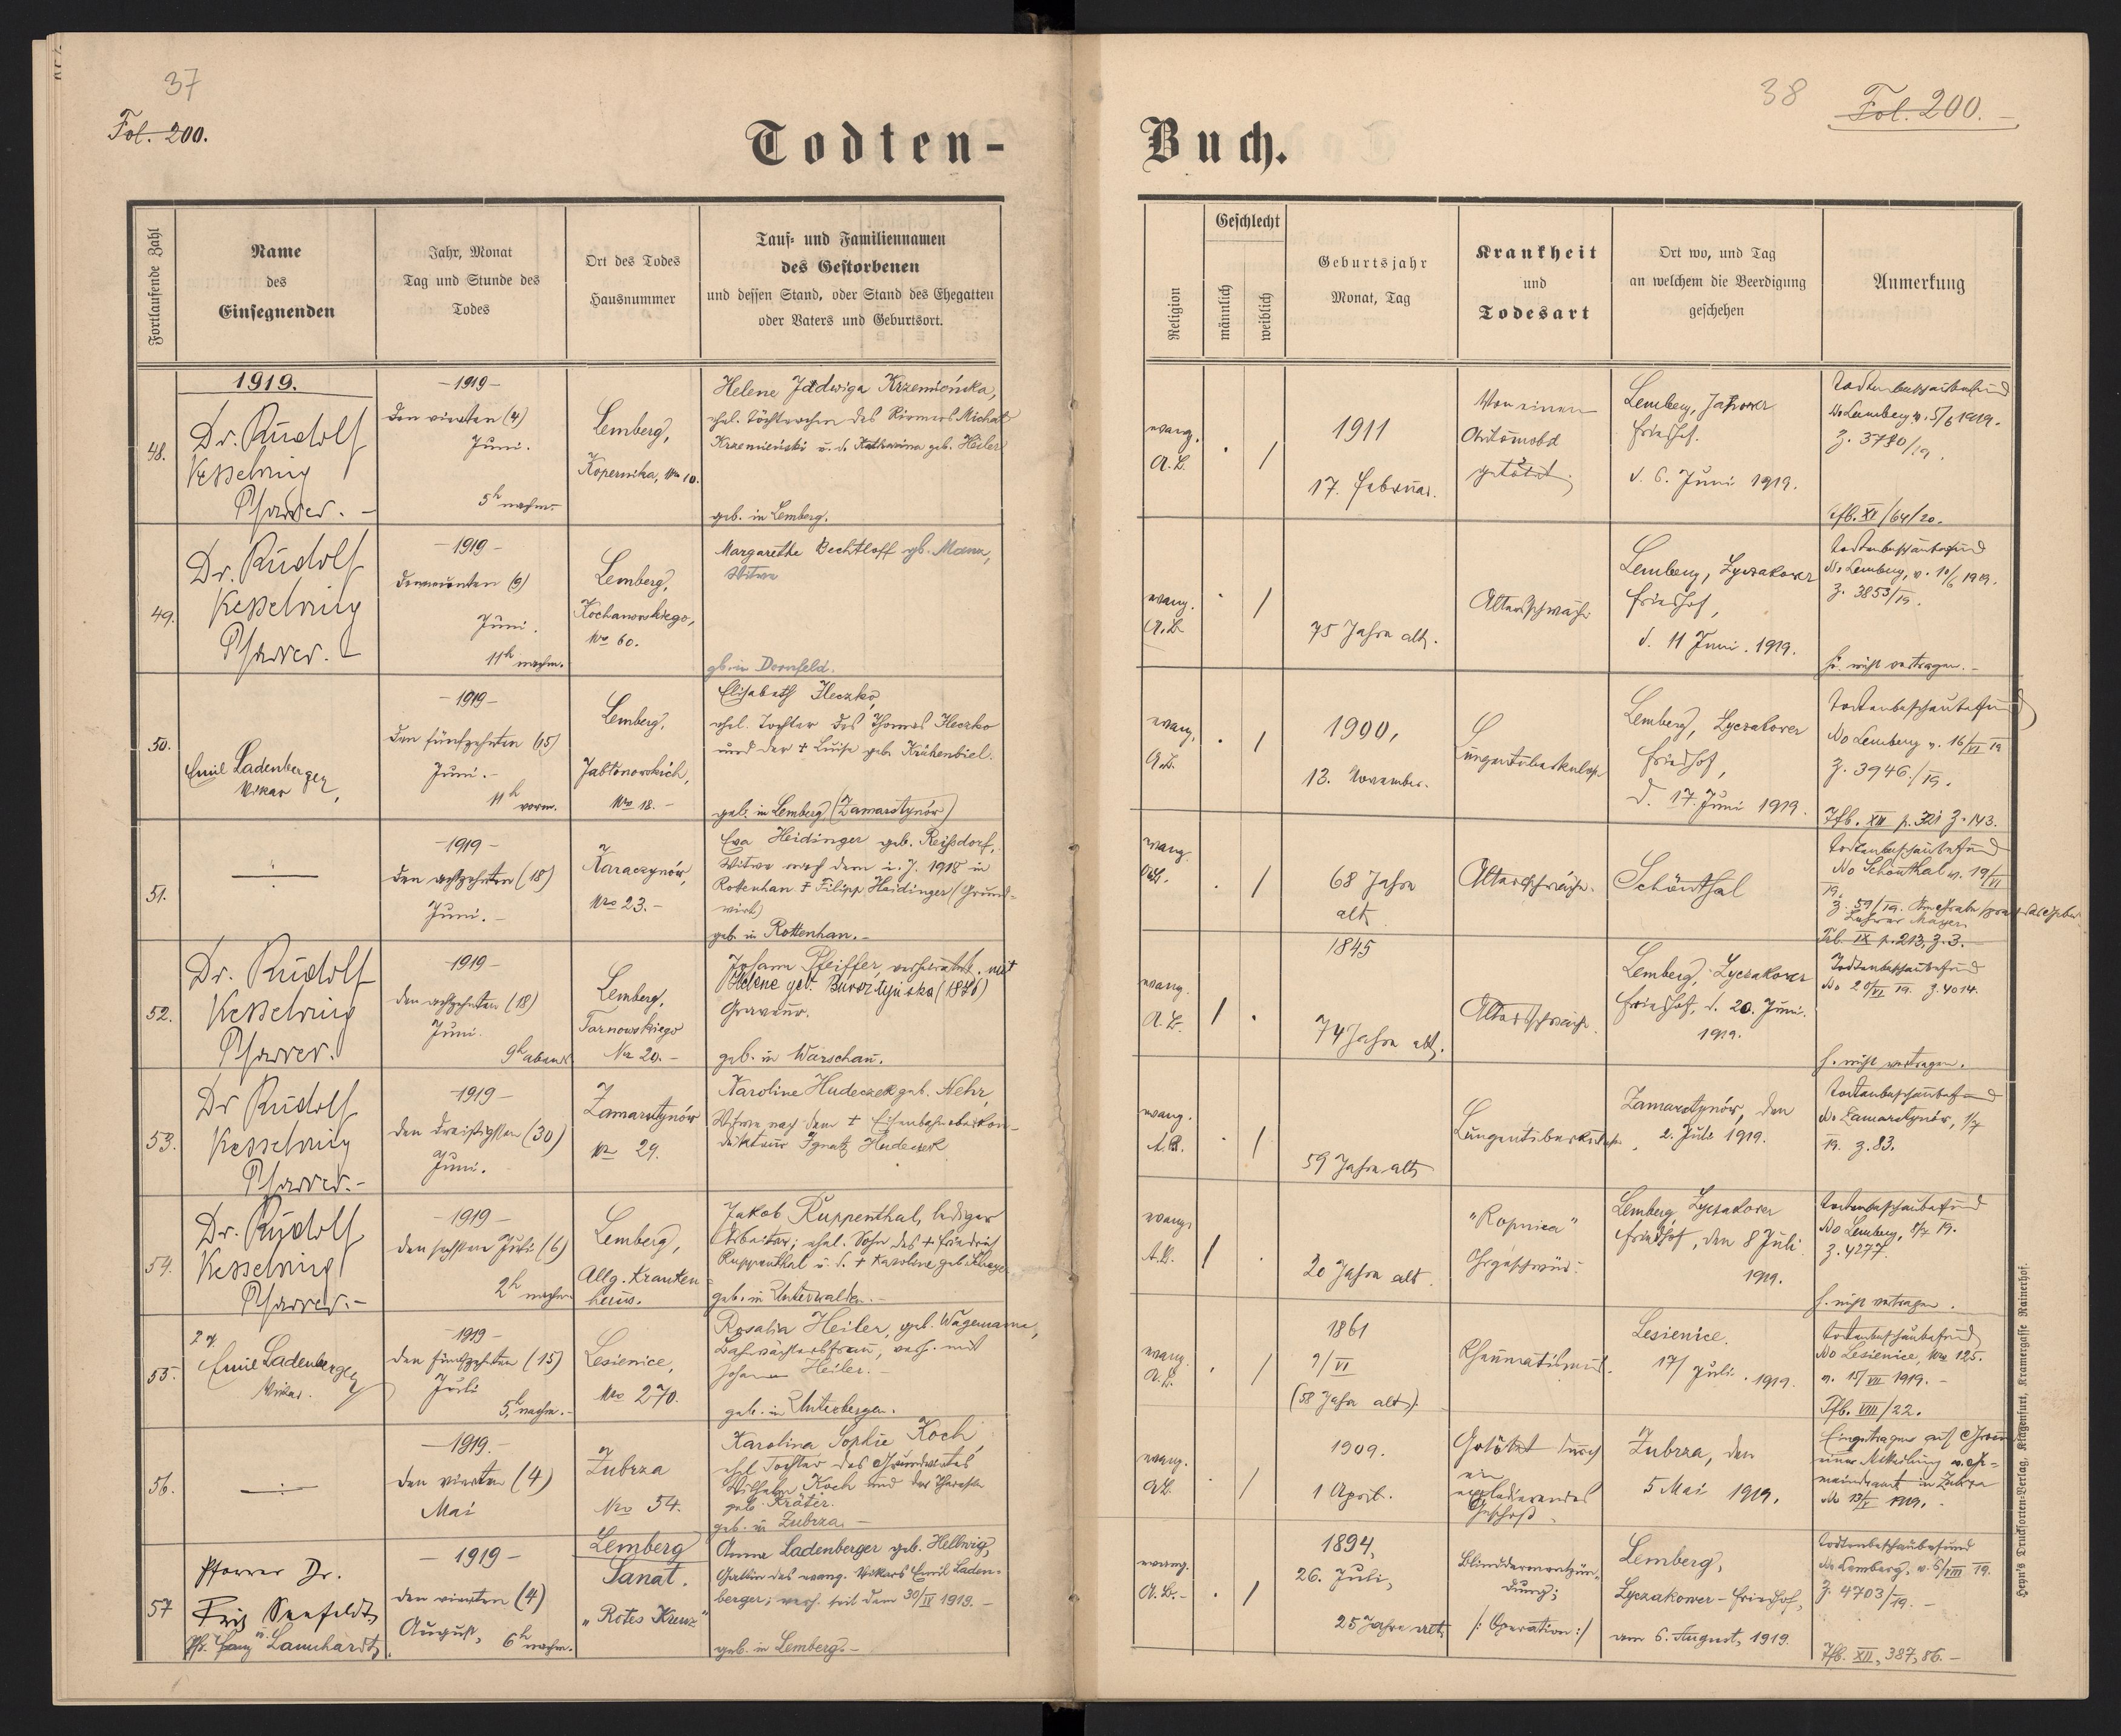 37
Fol. 200.
Todten-
Fortlaufende Zahl
Name
des
Einsegnenden
Jahr, Monat
Tag und Stunde des
Todes
Ort des Todes
Hausnummer
Tauf- und Familiennamen
des Gestorbenen
und dessen Stand, oder Stand des Ehegatten
oder Vaters und Geburtsort.
1919.
48.
Dr. Rudolf
Kesselring
Pfarrer. -
- 1919 -
den vierten (4)
Juni.
5h nachm.
Lemberg,
Kopernika, Nro 10.
Helene Jadwiga Krzemińska,
ehel. Töchterchen des Riemers Michał
Krzemieński u. d. Katharina geb. Heiler
geb. in Lemberg.
49.
Dr. Rudolf
Kesselring
Pfarrer. -
- 1919 -
den neunten (9)
Juni.
11h nachm.
Lemberg,
Kochanowskiego,
Nro 60.
Margarethe Bechtloff gb. Mann,
Witwe
gb. in Dornfeld.
50.
Emil Ladenberger,
Vikar
- 1919 -
den fünfzehnten (15)
Juni. -
11h vorm.
Lemberg,
Jabłonowskich,
Nro 18. -
Elisabeth Heczko,
ehel. Tochter des Thomas Heczko
und der + Luise geb. Krähenbiel.
geb. in Lemberg (Zamarstynów)
51.
- 1919 -
den achtzehnten (18)
Juni. -
Karaczynów,
Nro 23. -
Eva Heidinger geb. Reißdorf,
Witwe nach dem i. J. 1918 in
Rottenhan + Filipp Heidinger (Grund-
wirt)
geb. in Rottenhan. -
52.
Dr. Rudolf
Kesselring
Pfarrer.
- 1919 -
den achtzehnten (18)
Juni.
9h abends
Lemberg,
Tarnowskiego
Nr 20. -
Johann Pfeiffer, verheiratet. mit
Helene geb.
Graveur.
geb. in Warschau.
53.
Dr Rudolf
Kesselring
Pfarrer. -
- 1919 -
den dreißigsten (30)
Juni.
Zamarstynów
Nr 29.
Karoline Hudeczek geb. Nehr,
Witwe nach dem + Eisenbahnoberkon-
dukteur Ignatz Hudeczek
54.
Dr. Rudolf
Kesselring
Pfarrer. -
- 1919 -
den sechsten Juli (6)
2h nachm.
Lemberg,
Allg. Kranken-
haus.
Jakob Ruppenthal, lediger
Arbeiter; ehel. Sohn des + Friedrich
Ruppenthal u. d. + Karoline geb.
geb. in Unterwalden. -
55.
Emil Ladenberger
Vikar.
- 1919 -
den fünfzehnten (15)
Juli
5h nachm. -
Lesienice,
Nro 270.
Rosalia Heiler, geb. Wagemann,
Bahnwächtersfrau, verh. mit
Johann Heiler. -
geb. in Unterbergen.
56.
- 1919. -
den vierten (4)
Mai
Zubrza
Nro 54.
Karolina Sophie Koch,
ehel. Tochter des Grundwirtes
Wilhelm Koch und der Theresia
geb. Kräter.
geb. in Zubrza -
57
Pfarrer Dr.
Fritz Seefeldt
u. Lannhardt.
- 1919 -
den vierten (4)
August, 6h nachm.
Lemberg
Sanat.
„Rotes Kreuz“
Anna Ladenberger geb. Hellwig,
Gattin des evang. Vikars Emil Laden-
berger; verh. seit dem 30/IV 1919. -
geb. in Lemberg. -
38
Fol. 200. -
Buch.
Religion
Geschlecht
männlich
weiblich
Geburtsjahr
Monat, Tag
Krankheit
und
Todesart
Ort wo, und Tag
an welchem die Beerdigung
geschehen
Anmerkung
evang.
A.B.
1911
17. Februar.
Von einem
Automobil
getötet.
Lemberg, Janower
Friedhof.
d. 6. Juni 1919.
Todtenbeschaubefund
No Lemberg v. 5/6 1919.
Z. 3780/19.
XI/64/20.
evang.
A.B.
75 Jahre alt.
Altersschwäche
Lemberg, Lyczakower
Friedhof,
d. 11 Juni. 1919.
Todtenbeschaubefund
No Lemberg, v. 10/6 1919.
Z. 3853/19.
nicht vertragen. -
evang.
A.B.
1900,
13. November.
Lungentuberkulose
Lemberg, Lyczakower
Friedhof,
d. 17. Juni 1919.
Todtenbeschaubefund
No Lemberg v. 16/VI 19
Z. 3946/19.
Tfb. XII p. 321 Z. 143.
evang.
A.B.
68 Jahre
alt
Altersschwäche.
Schönthal
Todtenbeschaubefund
No Schönthal v. 19/VI
19.
Z. 59/19.
Tfb. IX p. 213, Z. 3. -
evang.
A.B.
1845
74 Jahre alt.
Altersschwäche.
Lemberg, Lyczakower
Friedhof, d. 20. Juni.
1919.
Todtenbeschaubefund
No 20/VI 19. Z. 4014.
nicht vertragen.
evang.
A.B.
59 Jahre alt
Lungentuberkulose
Zamarstynów, den
2. Juli 1919.
Todtenbeschaubefund
No Zamarstynów, 1/7
19. Z. 83.
evang.
A.B.
20 Jahre alt.
"Ropnica"
Lemberg Lyczakower
Friedhof, den 8 Juli
1919.
Todtenbeschaubefund
No Lemberg, 8/7 19.
Z. 4277.
nicht vertragen.
evang.
A.B.
1861
9/VI
(58 Jahre alt).
Rheumatismus.
Lesienice.
17/ Juli. 1919.
Todtenbeschaubefund
No Lesienice, Nro 125.
v. 15/VII 1919. -
Tfb. VIII/22.
evang.
A.B.
1909.
1 April.
Getötet durch
ein
explodierendes
Geschoß.
Zubrza, den
5 Mai 1919.
Eingetragen auf Grund
einer Mitteilung v. Ge-
meindeamt in Zubrza
No 13/V 1919. -
evang.
A.B. -
1894,
26. Juli,
25 Jahre alt.
Blinddarmentzün-
dung;
/: Operation :/
Lemberg,
Lyczakower - Friedhof,
am 6. August, 1919.
Todtenbeschaubefund
No Lemberg, v. 5/VIII 19.
Z. 4703/19. -
Tfb. XII, 387, 86. -
Heyn's Drucksorten-Verlag, Klagenfurt, Kramergasse Rainerhof.